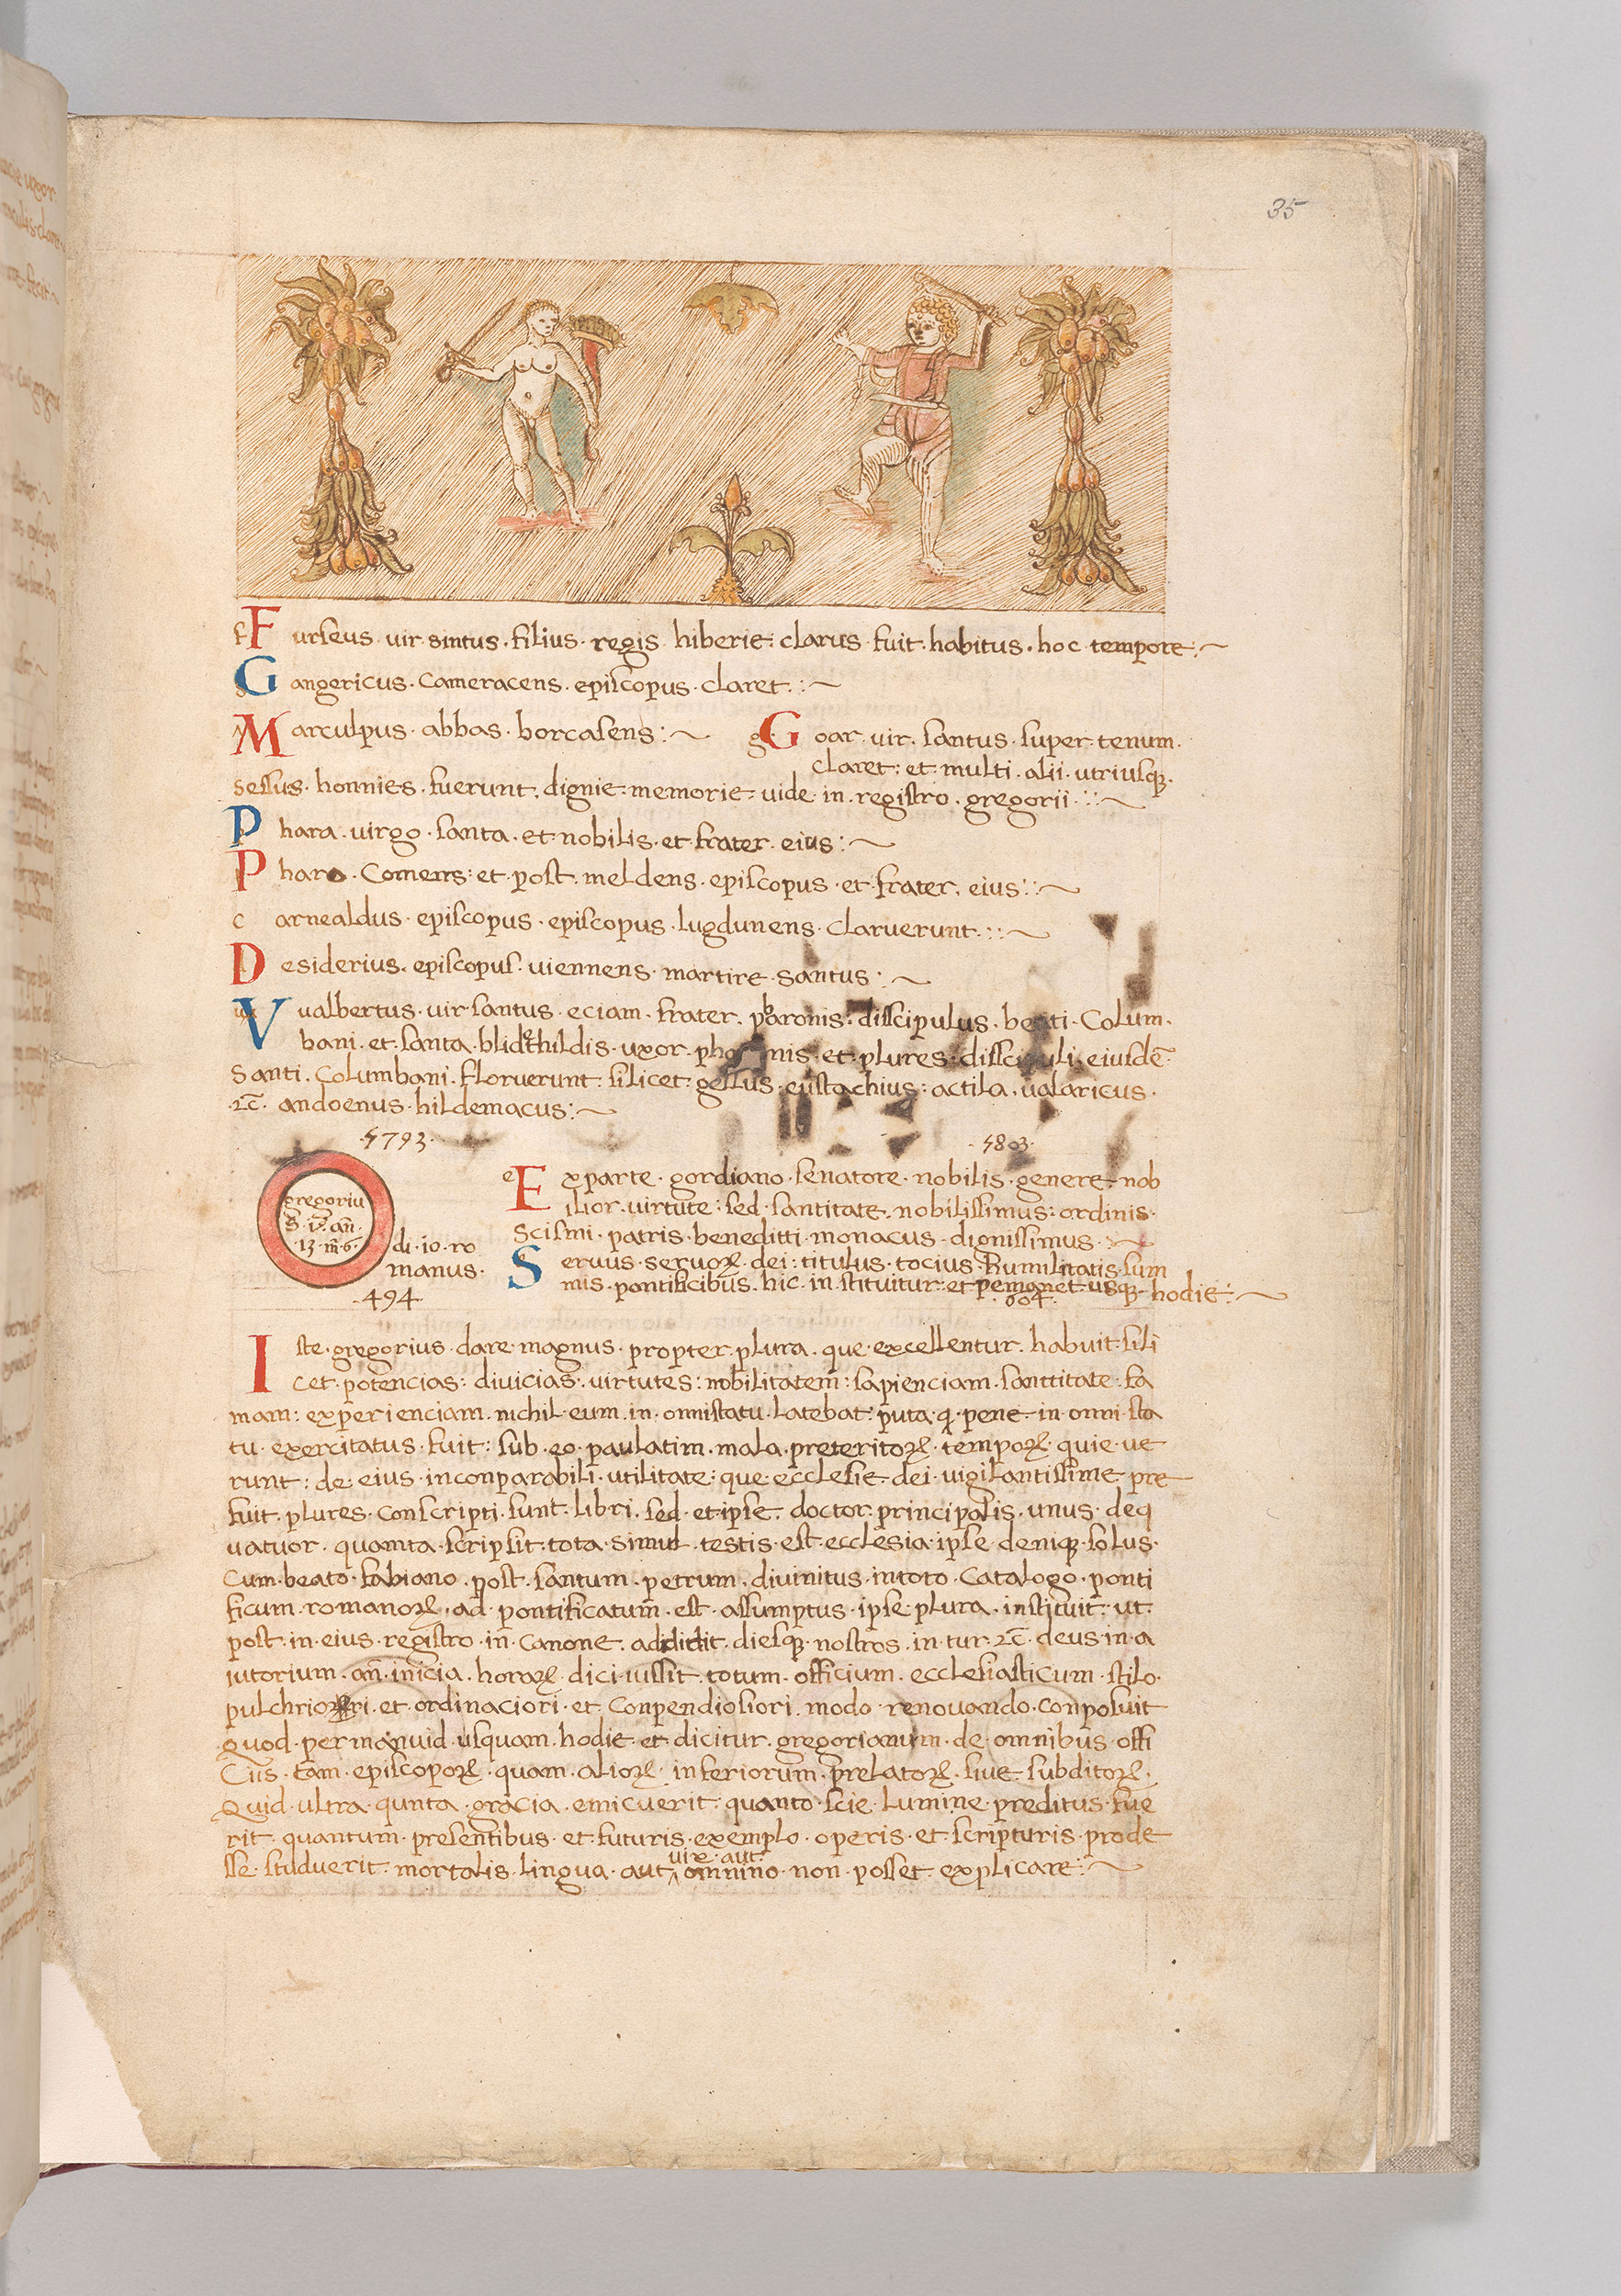 35
Furseus · uir sintus · filius · regis · hiberie : clarus · fuit · habitus · hoc tempore :~
Gangericus · cameracens · episcopus · claret :~
Marculpus · abbas · borcasens :~
Goar · uir · santus · super · tenum ·
claret : et · multi · alii · utriusq̃ ·
sessus · honnies · fuerunt · dignie · memorie · uide · in · registro · gregorii :~
Phara · uirgo · santa · et nobilis · et frater · eius :~
Pharo · Comens : et · post · meldens · episcopus · et · frater · eius :~
carnealdus · episcopus · episcopus · lugdunens · claruerunt :~
Desiderius · episcopus · uiennens · martire · santus :~
Vualbertus · uir santus · eciam · frater · pharonis : disscipulus · beati · Colum ·
bani · et · santa · blidethildis · uxor · et · plures : eiusdē ·
Santi · Columbani · floruerunt : silicet : gellus · eustachius : actila · ualaricus ·
⁊c̄ · andoenus · hildemacus :~
· 5793 ·
· 5803 ·
gregoriu
S · i9 · an̄ ·
· 13 · m̄ · 6 ·
di · io · ro
manus ·
· 494
Exparte · gordiano · senatore · nobilis · genere · nob
ilior · uirtute : sed · santitate · nobilissimus : ordinis ·
scismi · patris · beneditti · monacus · dignissimus :~
Seruus · seruoꝝ · dei : titulus · tocius · humilitatis · sum
mis · pontificibus · hic · in · stituitur · et permanet · usq̃ · hodie :~
· 604 ·
Iste · gregorius · dare · magnus · propter · plura · que · excellentur · habuit · sili
cet · potencias : diuicias : uirtutes : nobilitatem̄ : sapienciam · santtitate · fa
mam : experienciam · nichil · eum · in · omnistatu · latebat : puta · q · pene · in · omni · sta
tu · exercitatus · fuit : sub · eo · paulatim · mala · preteritoꝝ · tempoꝝ · quie · ue
runt : de · eius · inconparabili · utilitate : que · ecclesie · dei · uigilantissime · pre
fuit · plures · conscripti · sunt · libri · sed · et ipse · doctor · principalis · unus · deq
uatuor · quamta · scripsit · tota · simul · testis · est · ecclesia · ipse · denique · solus ·
cum · beato · fabiano · post · santum · petrum · diuinitus · intoto · catalogo · ponti
ficum · romanoꝝ · ad · pontificatum̄ · est · assumptus · ipse · plura · instituit · ut ·
post · in · eius · registro · in · canone · addidit · diesq̃ · nostros · in · tur · ⁊c̄ · deus · in · a
iutorium · an̄ · inicia · horaꝝ · dici · iussit · totum · officium · ecclesiasticum · stilo ·
pulchriori · et · ordinaciori · et · conpendiosiori · modo · renouando · conposuit
quod · permanuid · usquam · hodie · et · dicitur · gregorianum · de · omnibus · offi
ciis · tam · episcopoꝝ · quam · alioꝝ · inferiorum · prelatoꝝ · siue · subditoꝝ ·
Quid · ultra · qunta · gracia · emicuerit : quanto · scie · lumine · preditus · fue
rit · quantum · presentibus · et · futuris · exemplo · operis · et · scripturis · prode
sse · studuerit · mortalis · lingua · aut uix · aut omnino · non · posset · explicare :~